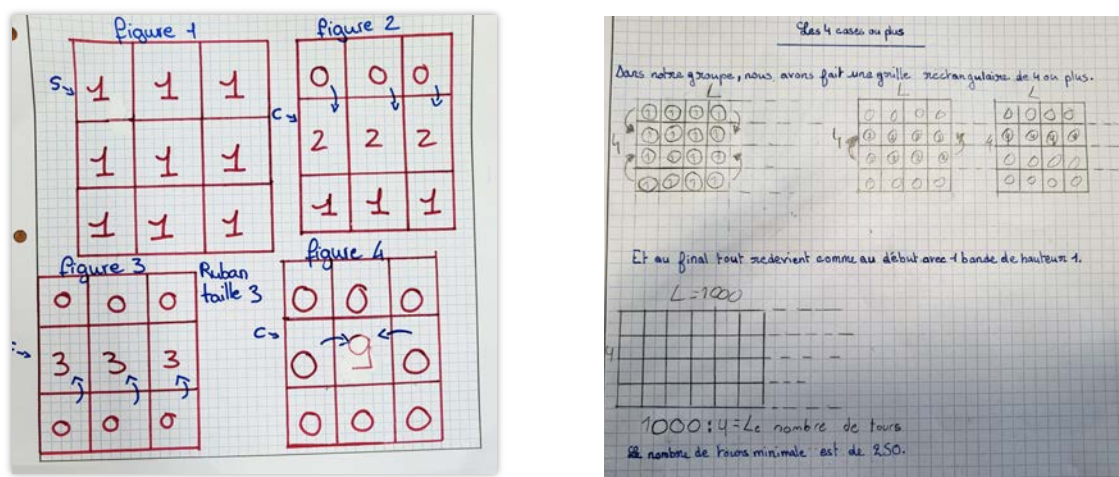 figure 1
S→ 1 1 1
1 1 1
1 1 1
figure 2
0 0 0
C→ 2 2 2
1 1 1
figure 3
Ruban
taille 3
0 0 0
3 3 3
0 0 0
figure 4
0 0 0
C→ 0 9 0
0 0 0
Les 4 cases ou plus
Dans notre groupe, nous avons fait une grille rectangulaire de 4 ou plus.
L
4
1 1 1 1
1 1 1 1
1 1 1 1
1 1 1 1
L
4
0 0 0 0
0 0 0 0
L
4
0 0 0 0
0 0 0 0
0 0 0 0
Et au final tout redevient comme au début avec 1 bande de hauteur 1.
L=1000
4
1000:4=Le nombre de tours
nombre de tours minimale est de 250.